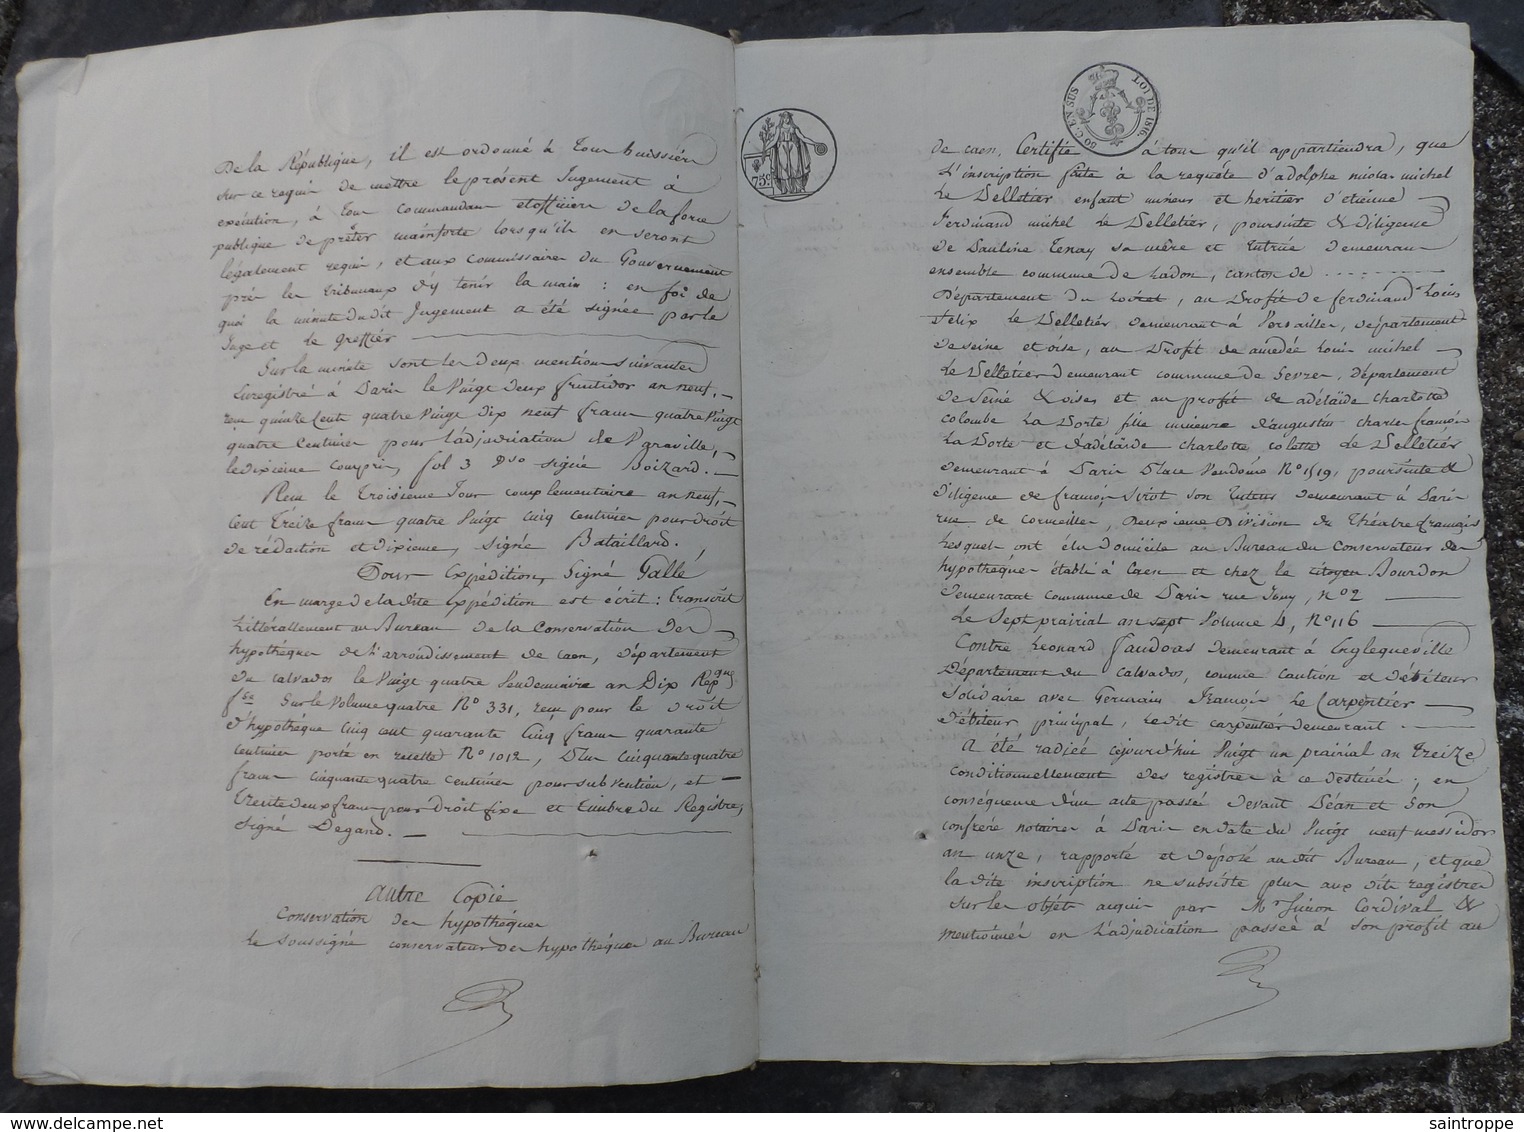 De la République, il est ordonné à tous huissiers
sur ce requis de mettre le présent Jugement à
exécution, à tous commandans et officiers de la force
publique de prêter mainforte lorsqu'ils en seront
légalement requis, et aux commissaires du Gouvernement
près les tribunaux d'y tenir la main : en foi de
quoi la minute dudit Jugement a été signée par le
Juge et le Greffier
Sur la minute sont les deux mentions suivantes
Enregistré à Paris le Vingt deux fructidor an neuf,
reçu quinze Cents quatre Vingt dix neuf francs quatre Vingt
quatre Centimes pour l'adjudication de
le dixième compris, fol 3 Vso signée Boizard.
Reçu le Troisième Jour complementaire an neuf,
Cent Treize francs quatre Vingt Cinq Centimes pour droit
de rédaction et dixieme, signée Bataillard.
Pour Expédition, Signé Gallé
En marge de ladite Expédition est écrit : Transcrit
Littérallement au Bureau de la Conservation des
hypothéques de l'arrondissement de Caen, département
du Calvados le Vingt quatre Vendemiaire an Dix Repque
fse Sur le Volume quatre No 331, reçu pour le droit
d'hypothéque Cinq cent quarante Cinq francs quarante
centimes porté en recette No 1012, Plus Cinquante quatre
francs Cinquante quatre centimes pour subvention, et
Trente deux francs pour Droit fixe et Timbre du Registre,
Signé Degand.
Autre Copie
Conservation des hypothéques
Le soussigné conservateur des hypothéques au Bureau
75c.
50 C. EN SUS LOI DE 1816.
de Caen, Certifie à tous qu'il appartiendra, que
L'inscription faite à la requête d'adolphe nicolas michel
Le Pelletier enfant mineur et héritier d'étienne
ferdinand michel Le Pelletier, poursuite & diligence
de Pauline Tenay sa mère et tutrice demeurans
ensemble commune de Ladon, canton de
Département du Loiret, au Profit de ferdinand Louis
felix Le Pelletier demeurant à Versailles, département
de seine et oise, au Profit de amédée Louis michel
Le Pelletier demeurant commune de Sevres, Département
de Seine & oises et au profit de adélaïde charlotte
colombe La Porte fille mineure d'augustin charles françois
La Porte et d'adélaïde charlotte colette Le Pelletier
demeurant à Paris Place Vendôme No 119, poursuite &
diligence de françois Sirot son tuteur demeurant à Paris
rue de corneilles, deuxieme Division du Théatre français
Lesquels ont élu domicile au Bureau du Conservateur des
hypothéques établi à Caen et chez le citoyen Bourdon
demeurant commune de Paris rue , no 2
Le Sept prairial an sept Volume 4, No 116
Contre Léonard faudoas demeurant à Englequeville
Département du Calvados, comme caution et débiteur
Solidaire avec Germain françois Le Carpentier
débiteur principal, ledit carpentier demeurant
A été radiée cejourd'hui Vingt un prairial an treize
Conditionnellement des registres à ce destinés ; en
conséquence d'un acte passé devant Péan et Son
confrère notaires à Paris en date du Vingt neuf messidor
an onze, rapporté et déposé audit Bureau, et que
la dite inscription ne subsiste plus aux dits registres
sur les objets acquis par Mr Simon Cordival &
mentionnés en l'adjudication passée à son profit au